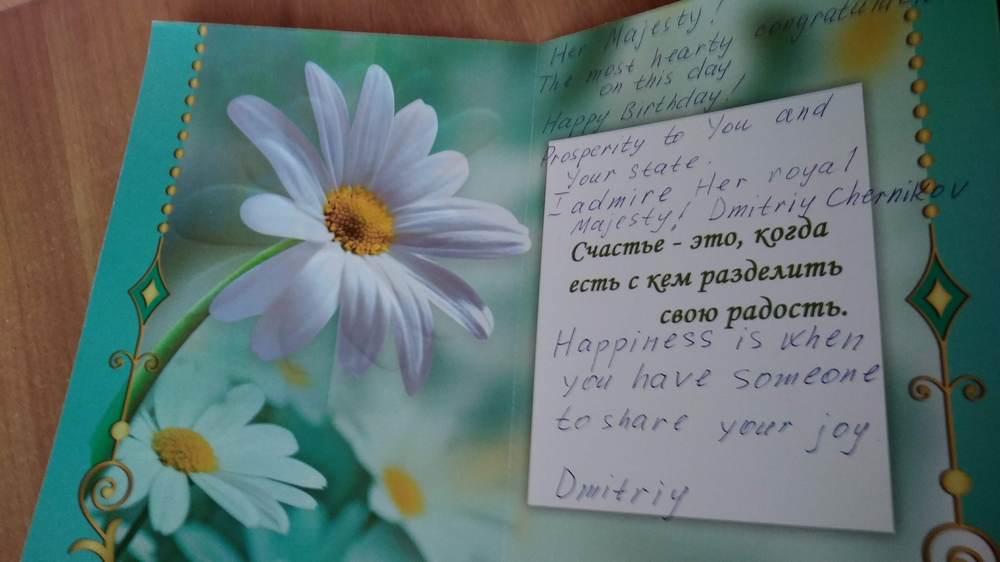 Her Majesty!
The most hearty
on this day
Happy Birthday!
Prosperity to You and
Your state.
I admire Her royal
Majesty! Dmitriy Chernikov
Счастье - это, когда
есть с кем разделить
свою радость.
Happiness is when
you have someone
to share your joy
Dmitriy